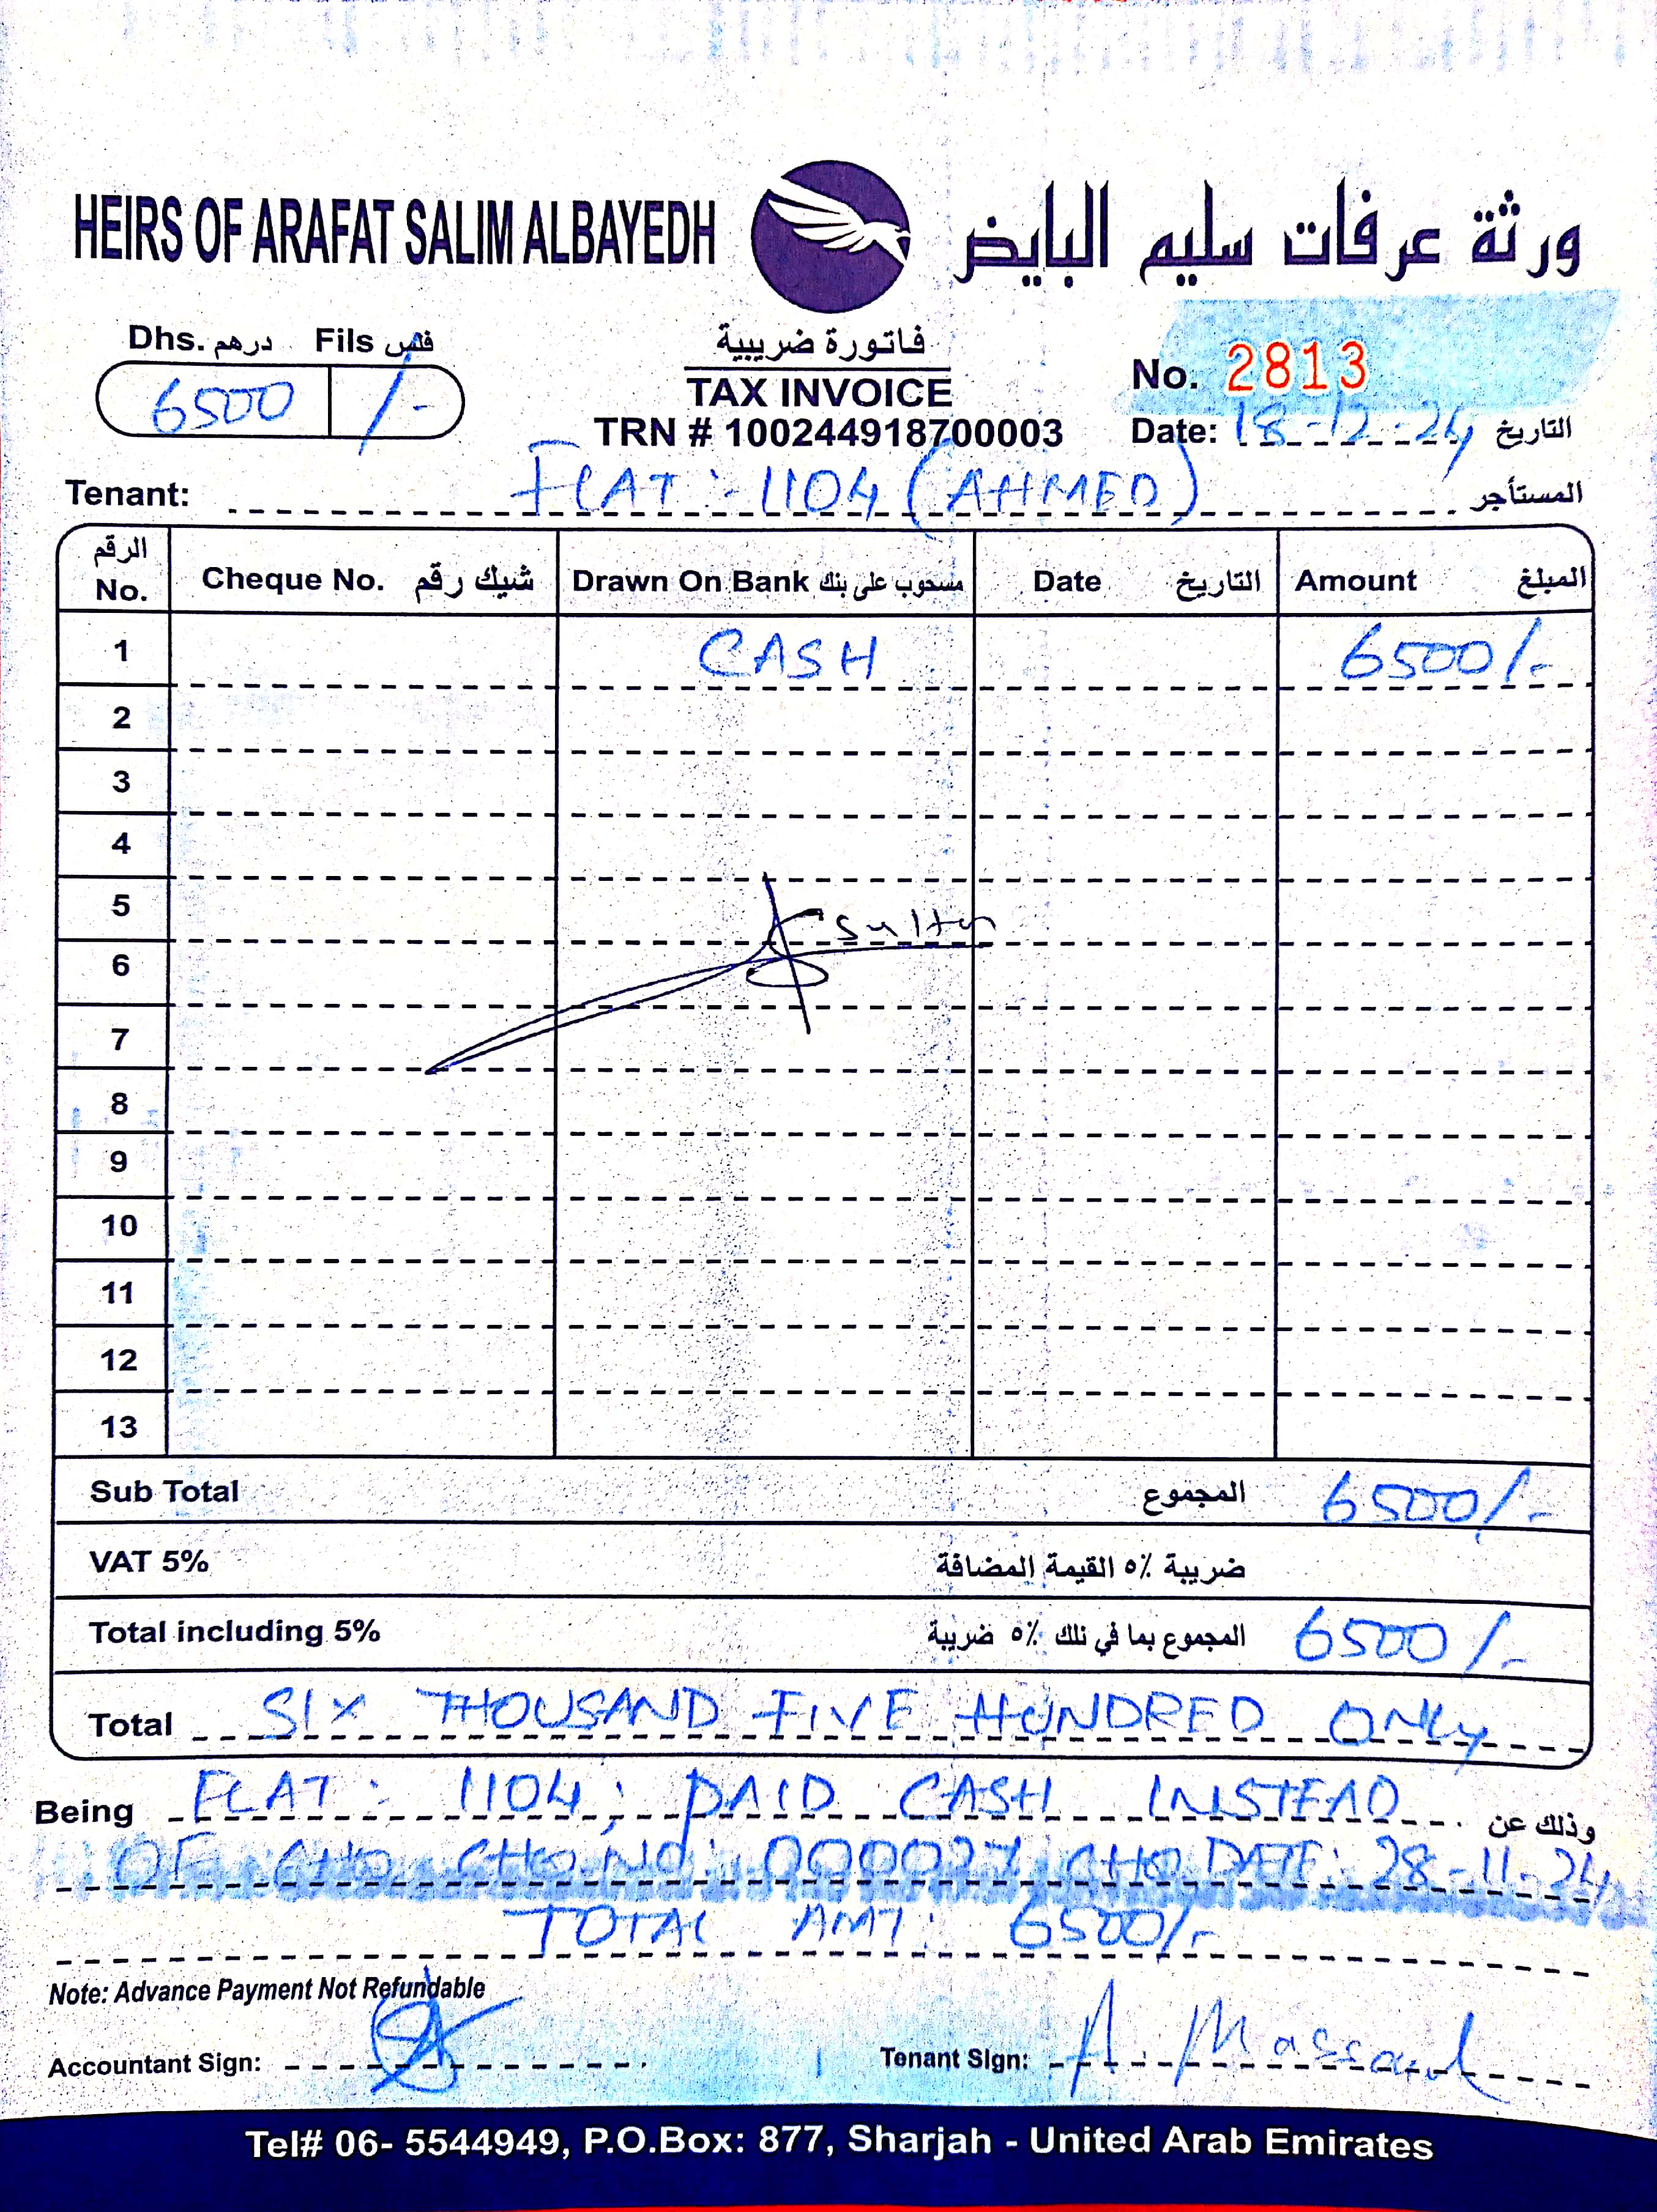 HEIRS OF ARAFAT SALIM ALBAYEDH ورثة عرفات سليم البايض
Dhs. درهم Fils فلس
6500 /-
فاتورة ضريبية
TAX INVOICE
TRN # 100244918700003
No. 2813
Date: 18-12-24 التاريخ
Tenant: FLAT:- 1104 (AHMED) المستأجر
الرقم No. Cheque No. شيك رقم Drawn On Bank مسحوب على بنك Date التاريخ Amount المبلغ
1 CASH 6500/-
2
3
4
5 Sultan
6
7
8
9
10
11
12
13
Sub Total المجموع 6500/-
VAT 5% ضريبة ٥٪ القيمة المضافة
Total including 5% المجموع بما في ذلك ٥٪ ضريبة 6500/-
Total SIX THOUSAND FIVE HUNDRED ONLY
Being FLAT: 1104; PAID CASH INSTEAD وذلك عن
OF CHQ CHQ NO: 000027 CHQ DATE: 28-11-24
TOTAL AMT: 6500/-
Note: Advance Payment Not Refundable
Accountant Sign: Tenant Sign: A. Massoud
Tel# 06- 5544949, P.O.Box: 877, Sharjah - United Arab Emirates